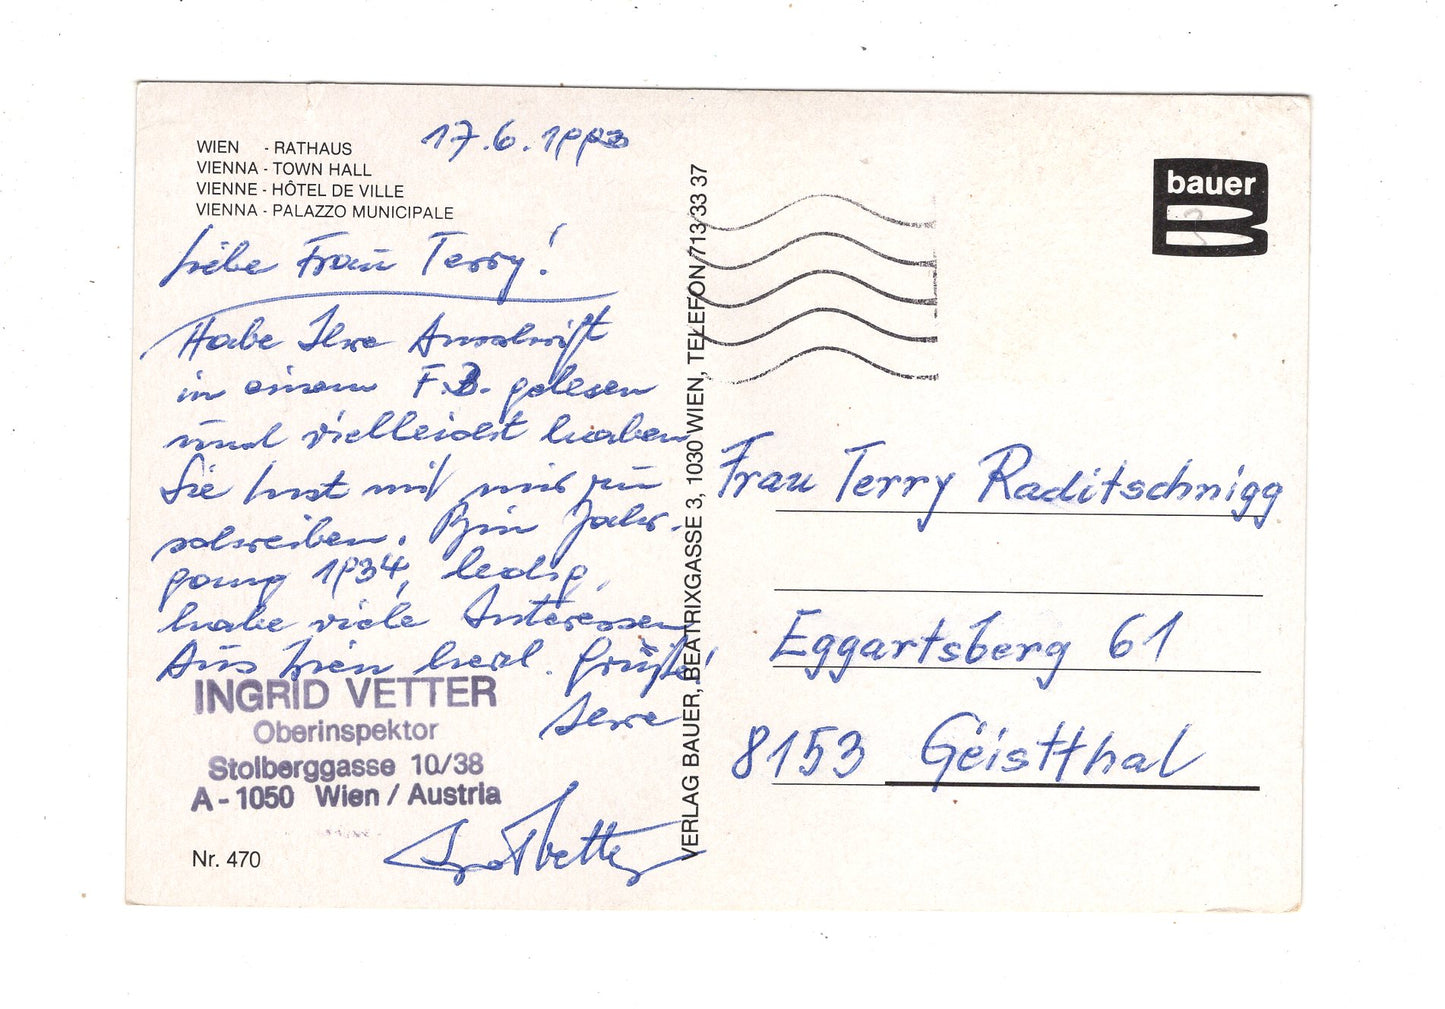 WIEN - RATHAUS
VIENNA - TOWN HALL
VIENNE - HÔTEL DE VILLE
VIENNA - PALAZZO MUNICIPALE
17.6.1993
Liebe Frau Terry!
Habe Ihre Anschrift
in einem F.B. gelesen
und vielleicht haben
Sie Lust mit mir zu
schreiben. Bin Jahr-
gang 1934, ledig,
habe viele Interessen
Aus Wien herzl. Grüße!
Ihre
INGRID VETTER
Oberinspektor
Stolberggasse 10/38
A - 1050 Wien / Austria
Nr. 470
VERLAG BAUER, BEATRIXGASSE 3, 1030 WIEN, TELEFON 713 33 37
bauer
Frau Terry Raditschnigg
Eggartsberg 61
8153 Geistthal